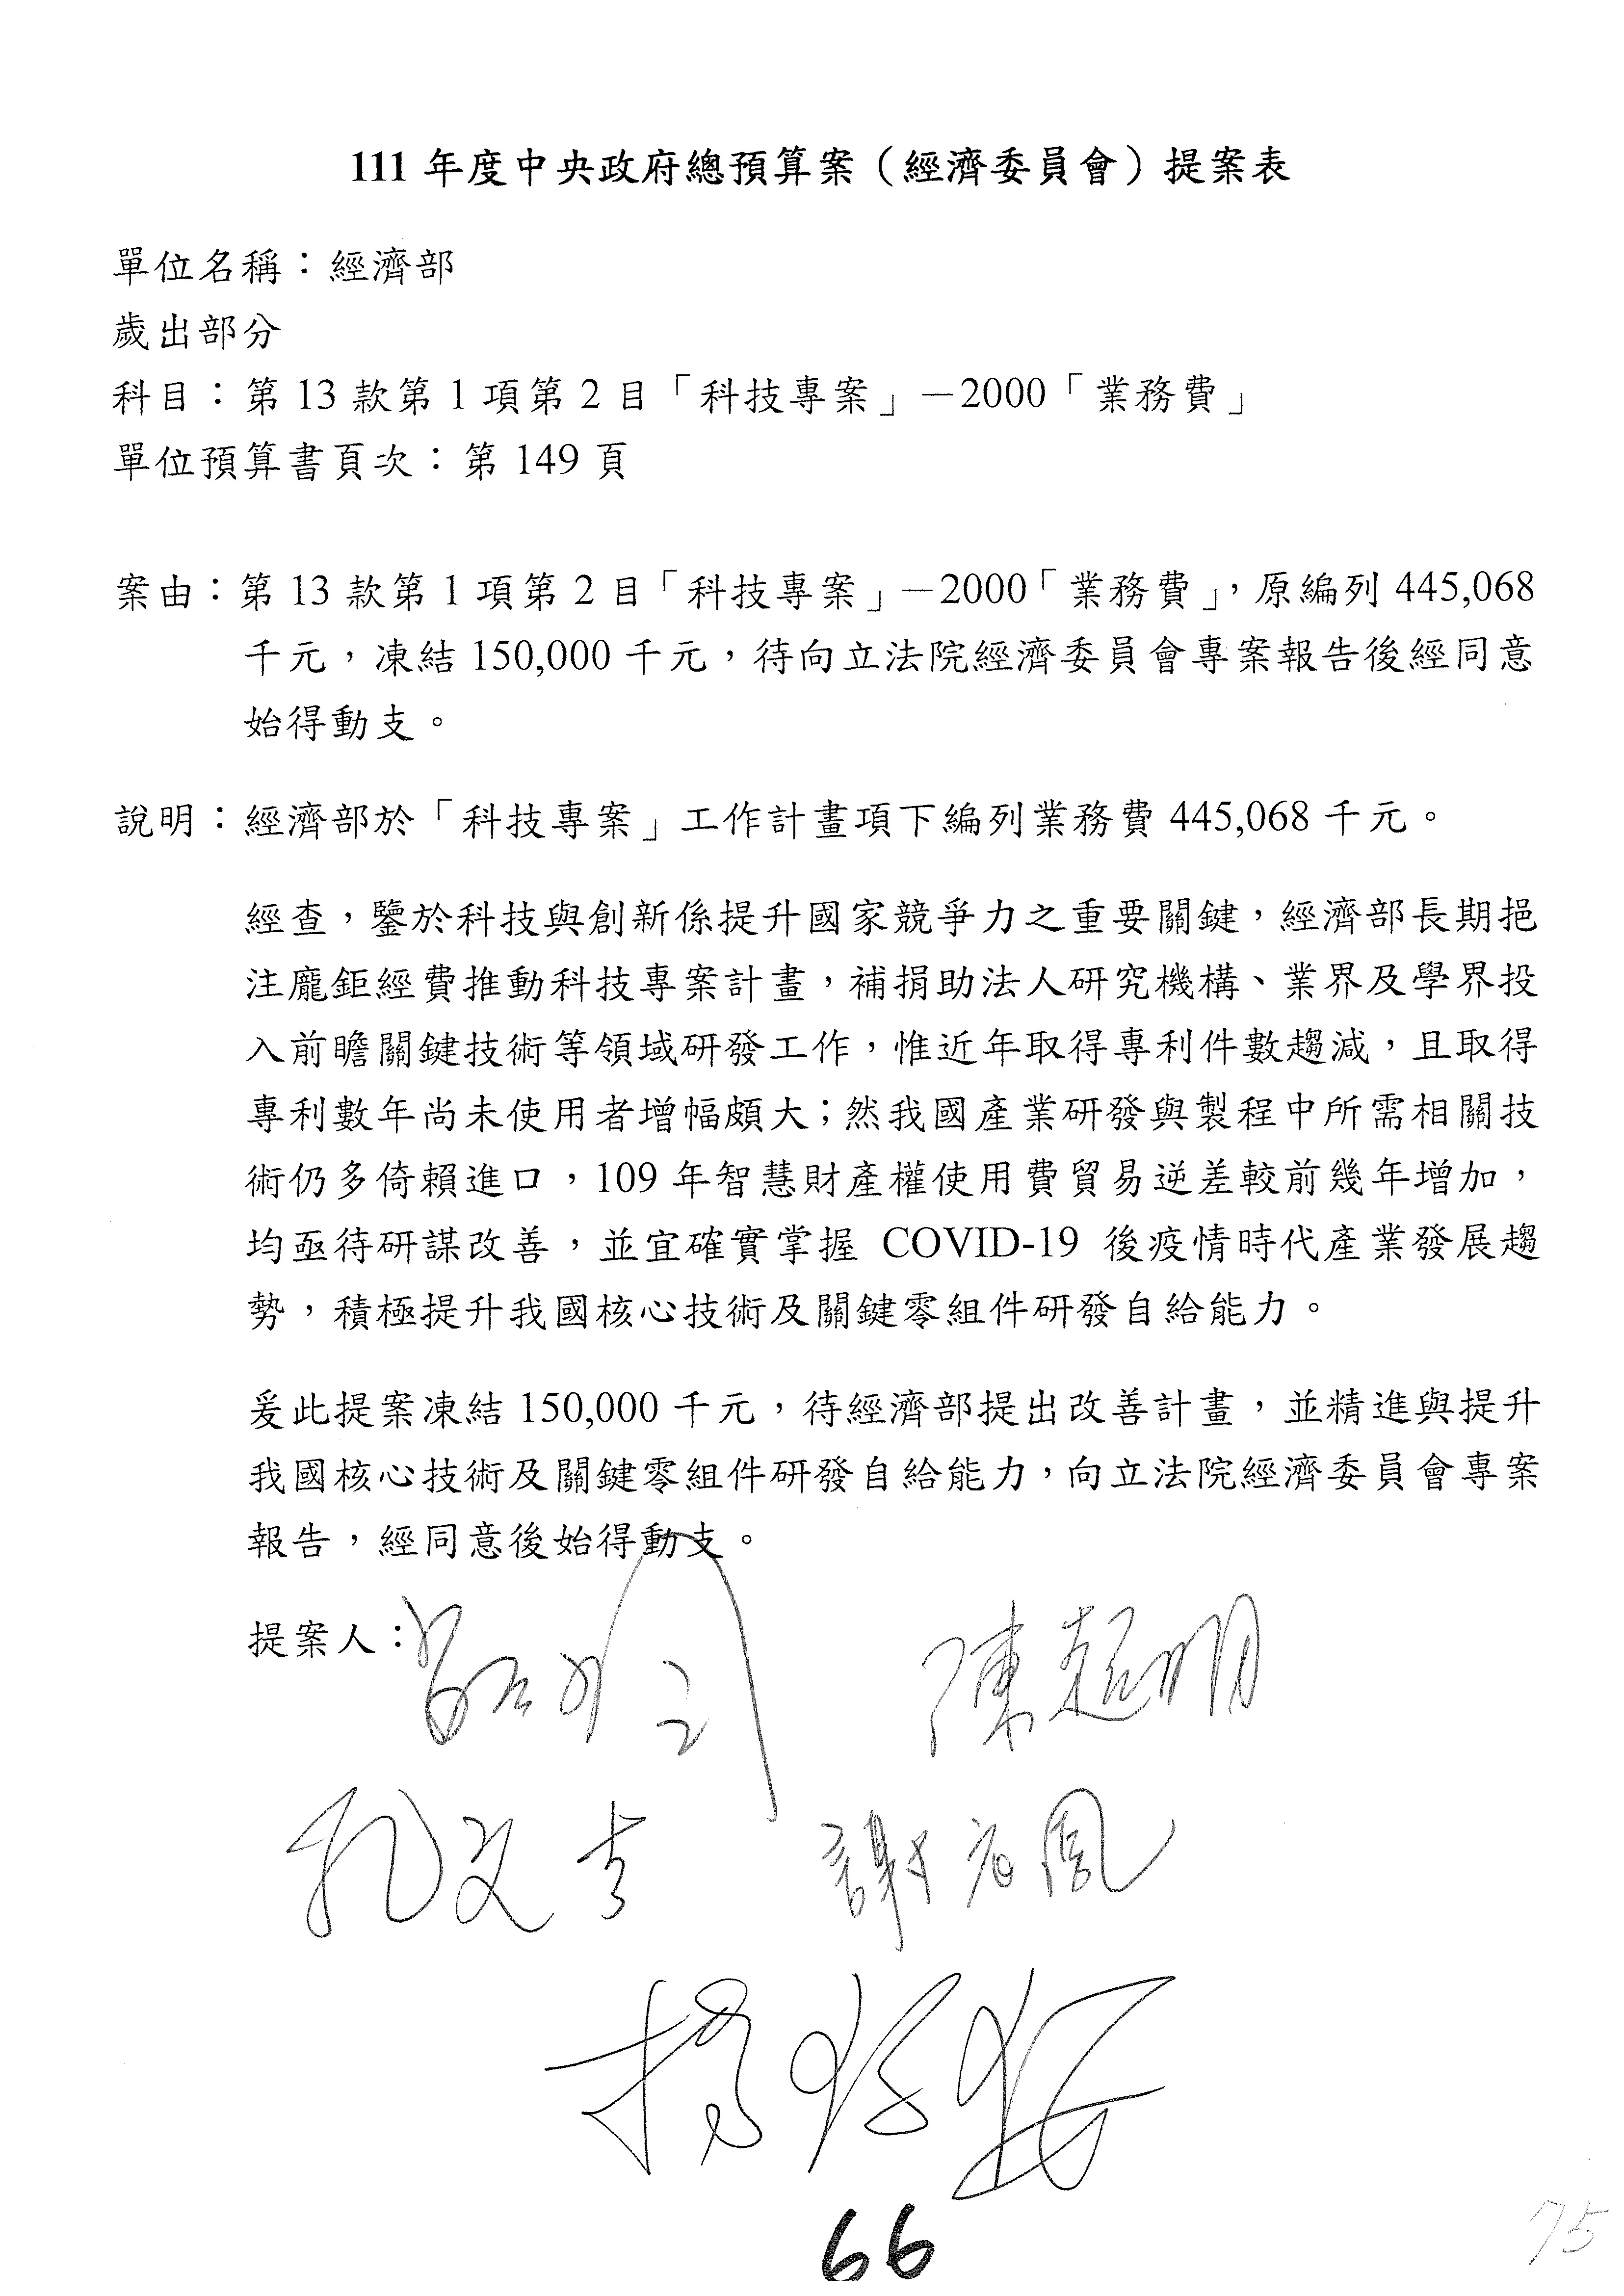 111 年度中央政府總預算案（經濟委員會）提案表
單位名稱：經濟部
歲出部分
科目：第 13 款第 1 項第 2 目「科技專案」－2000「業務費」
單位預算書頁次：第 149 頁
案由：第 13 款第 1 項第 2 目「科技專案」－2000「業務費」，原編列 445,068
千元，凍結 150,000 千元，待向立法院經濟委員會專案報告後經同意
始得動支。
說明：經濟部於「科技專案」工作計畫項下編列業務費 445,068 千元。
經查，鑒於科技與創新係提升國家競爭力之重要關鍵，經濟部長期挹
注龐鉅經費推動科技專案計畫，補捐助法人研究機構、業界及學界投
入前瞻關鍵技術等領域研發工作，惟近年取得專利件數趨減，且取得
專利數年尚未使用者增幅頗大；然我國產業研發與製程中所需相關技
術仍多倚賴進口，109 年智慧財產權使用費貿易逆差較前幾年增加，
均亟待研謀改善，並宜確實掌握 COVID-19 後疫情時代產業發展趨
勢，積極提升我國核心技術及關鍵零組件研發自給能力。
爰此提案凍結 150,000 千元，待經濟部提出改善計畫，並精進與提升
我國核心技術及關鍵零組件研發自給能力，向立法院經濟委員會專案
報告，經同意後始得動支。
提案人：
陳超明
孔文吉
謝衣鳳
66
75